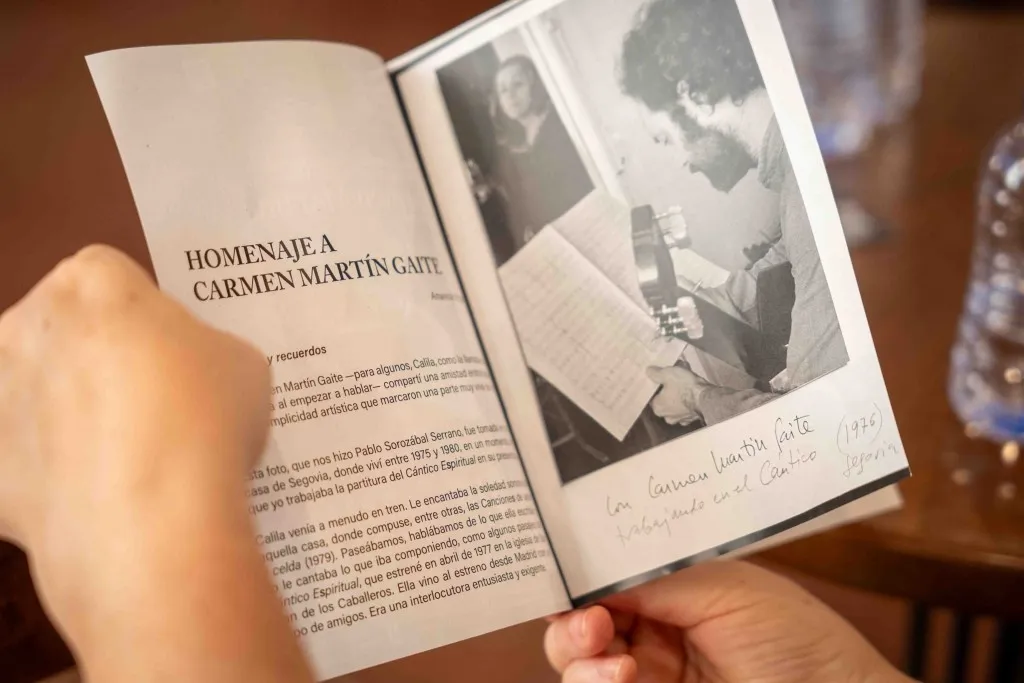 HOMENAJE A
CARMEN MARTÍN GAITE
Amancio
y recuerdos
en Martín Gaite —para algunos, Calila, como la llamaba
a al empezar a hablar— compartí una amistad
mplicidad artística que marcaron una parte muy
sta foto, que nos hizo Pablo Sorozábal Serrano, fue tomada
asa de Segovia, donde viví entre 1975 y 1980, en un momento
que yo trabajaba la partitura del Cántico Espiritual en su
Calila venía a menudo en tren. Le encantaba la soledad
quella casa, donde compuse, entre otras, las Canciones de
celda (1979). Paseábamos, hablábamos de lo que ella
le cantaba lo que iba componiendo, como algunos
ntico Espiritual, que estrené en abril de 1977 en la iglesia de
n de los Caballeros. Ella vino al estreno desde Madrid con
po de amigos. Era una interlocutora entusiasta y exigente.
Con Carmen Martin Gaite (1976)
trabajando en el Cántico Segovia